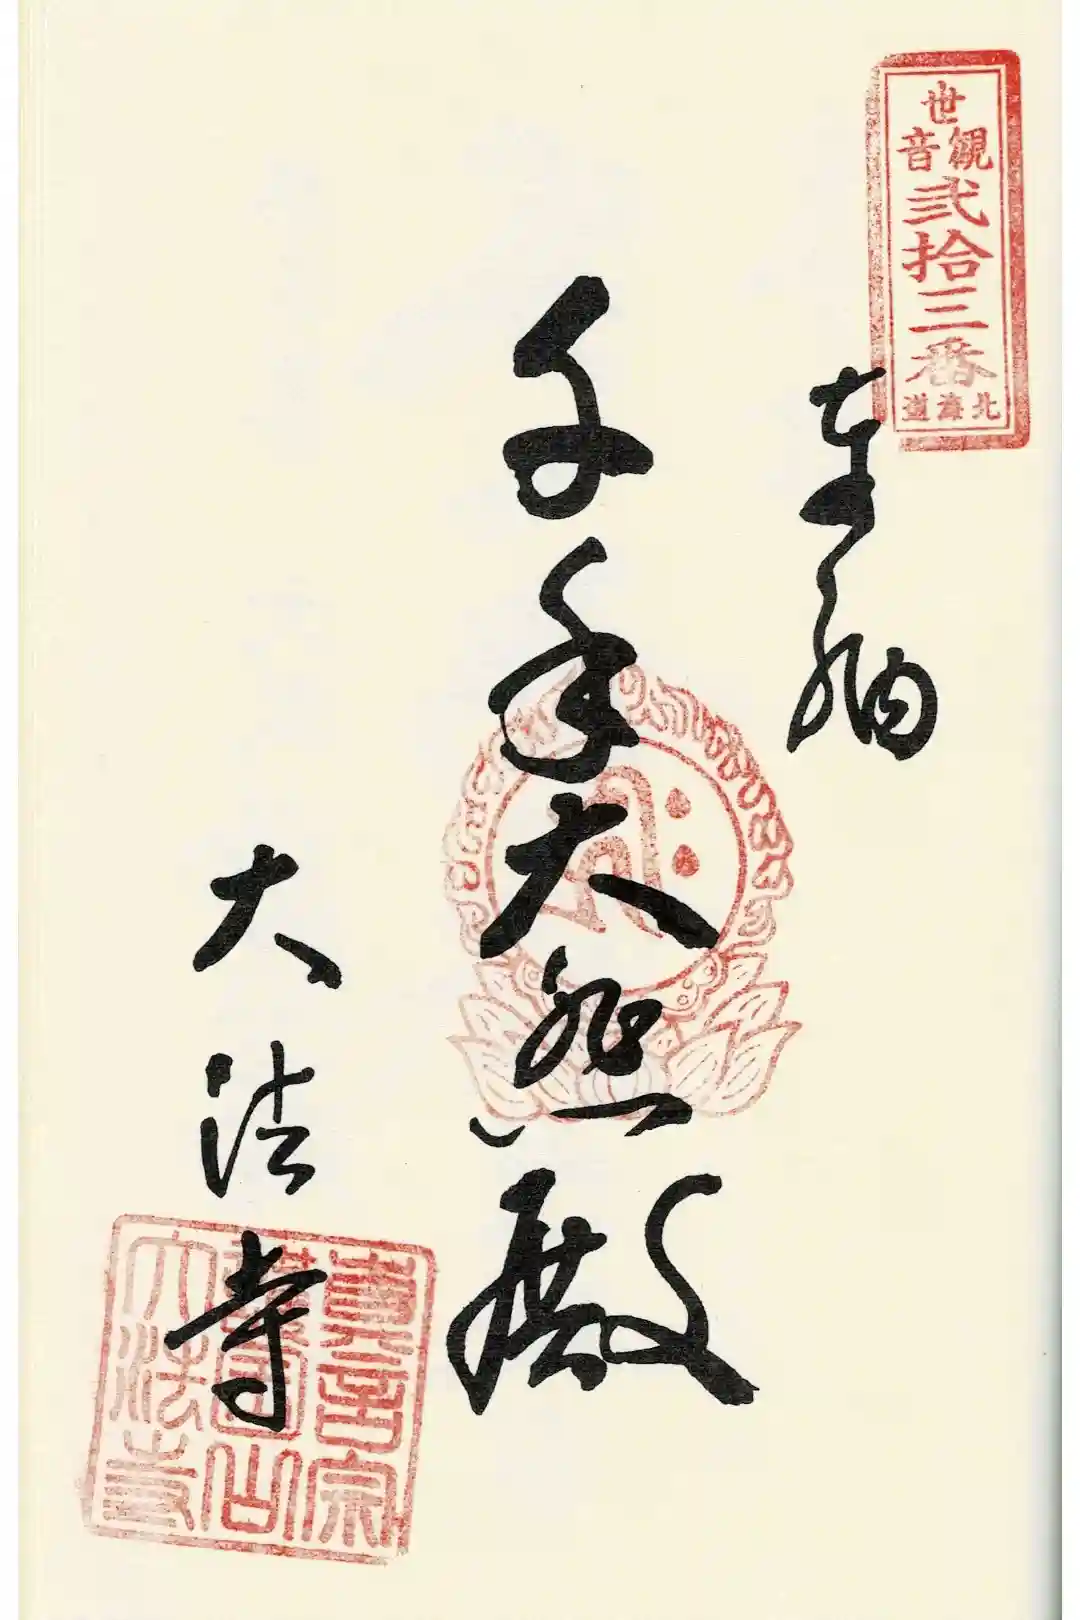 世観音
弐拾三番
北海道
奉納
千手大悲殿
大法寺
真言宗
護国山
大法寺